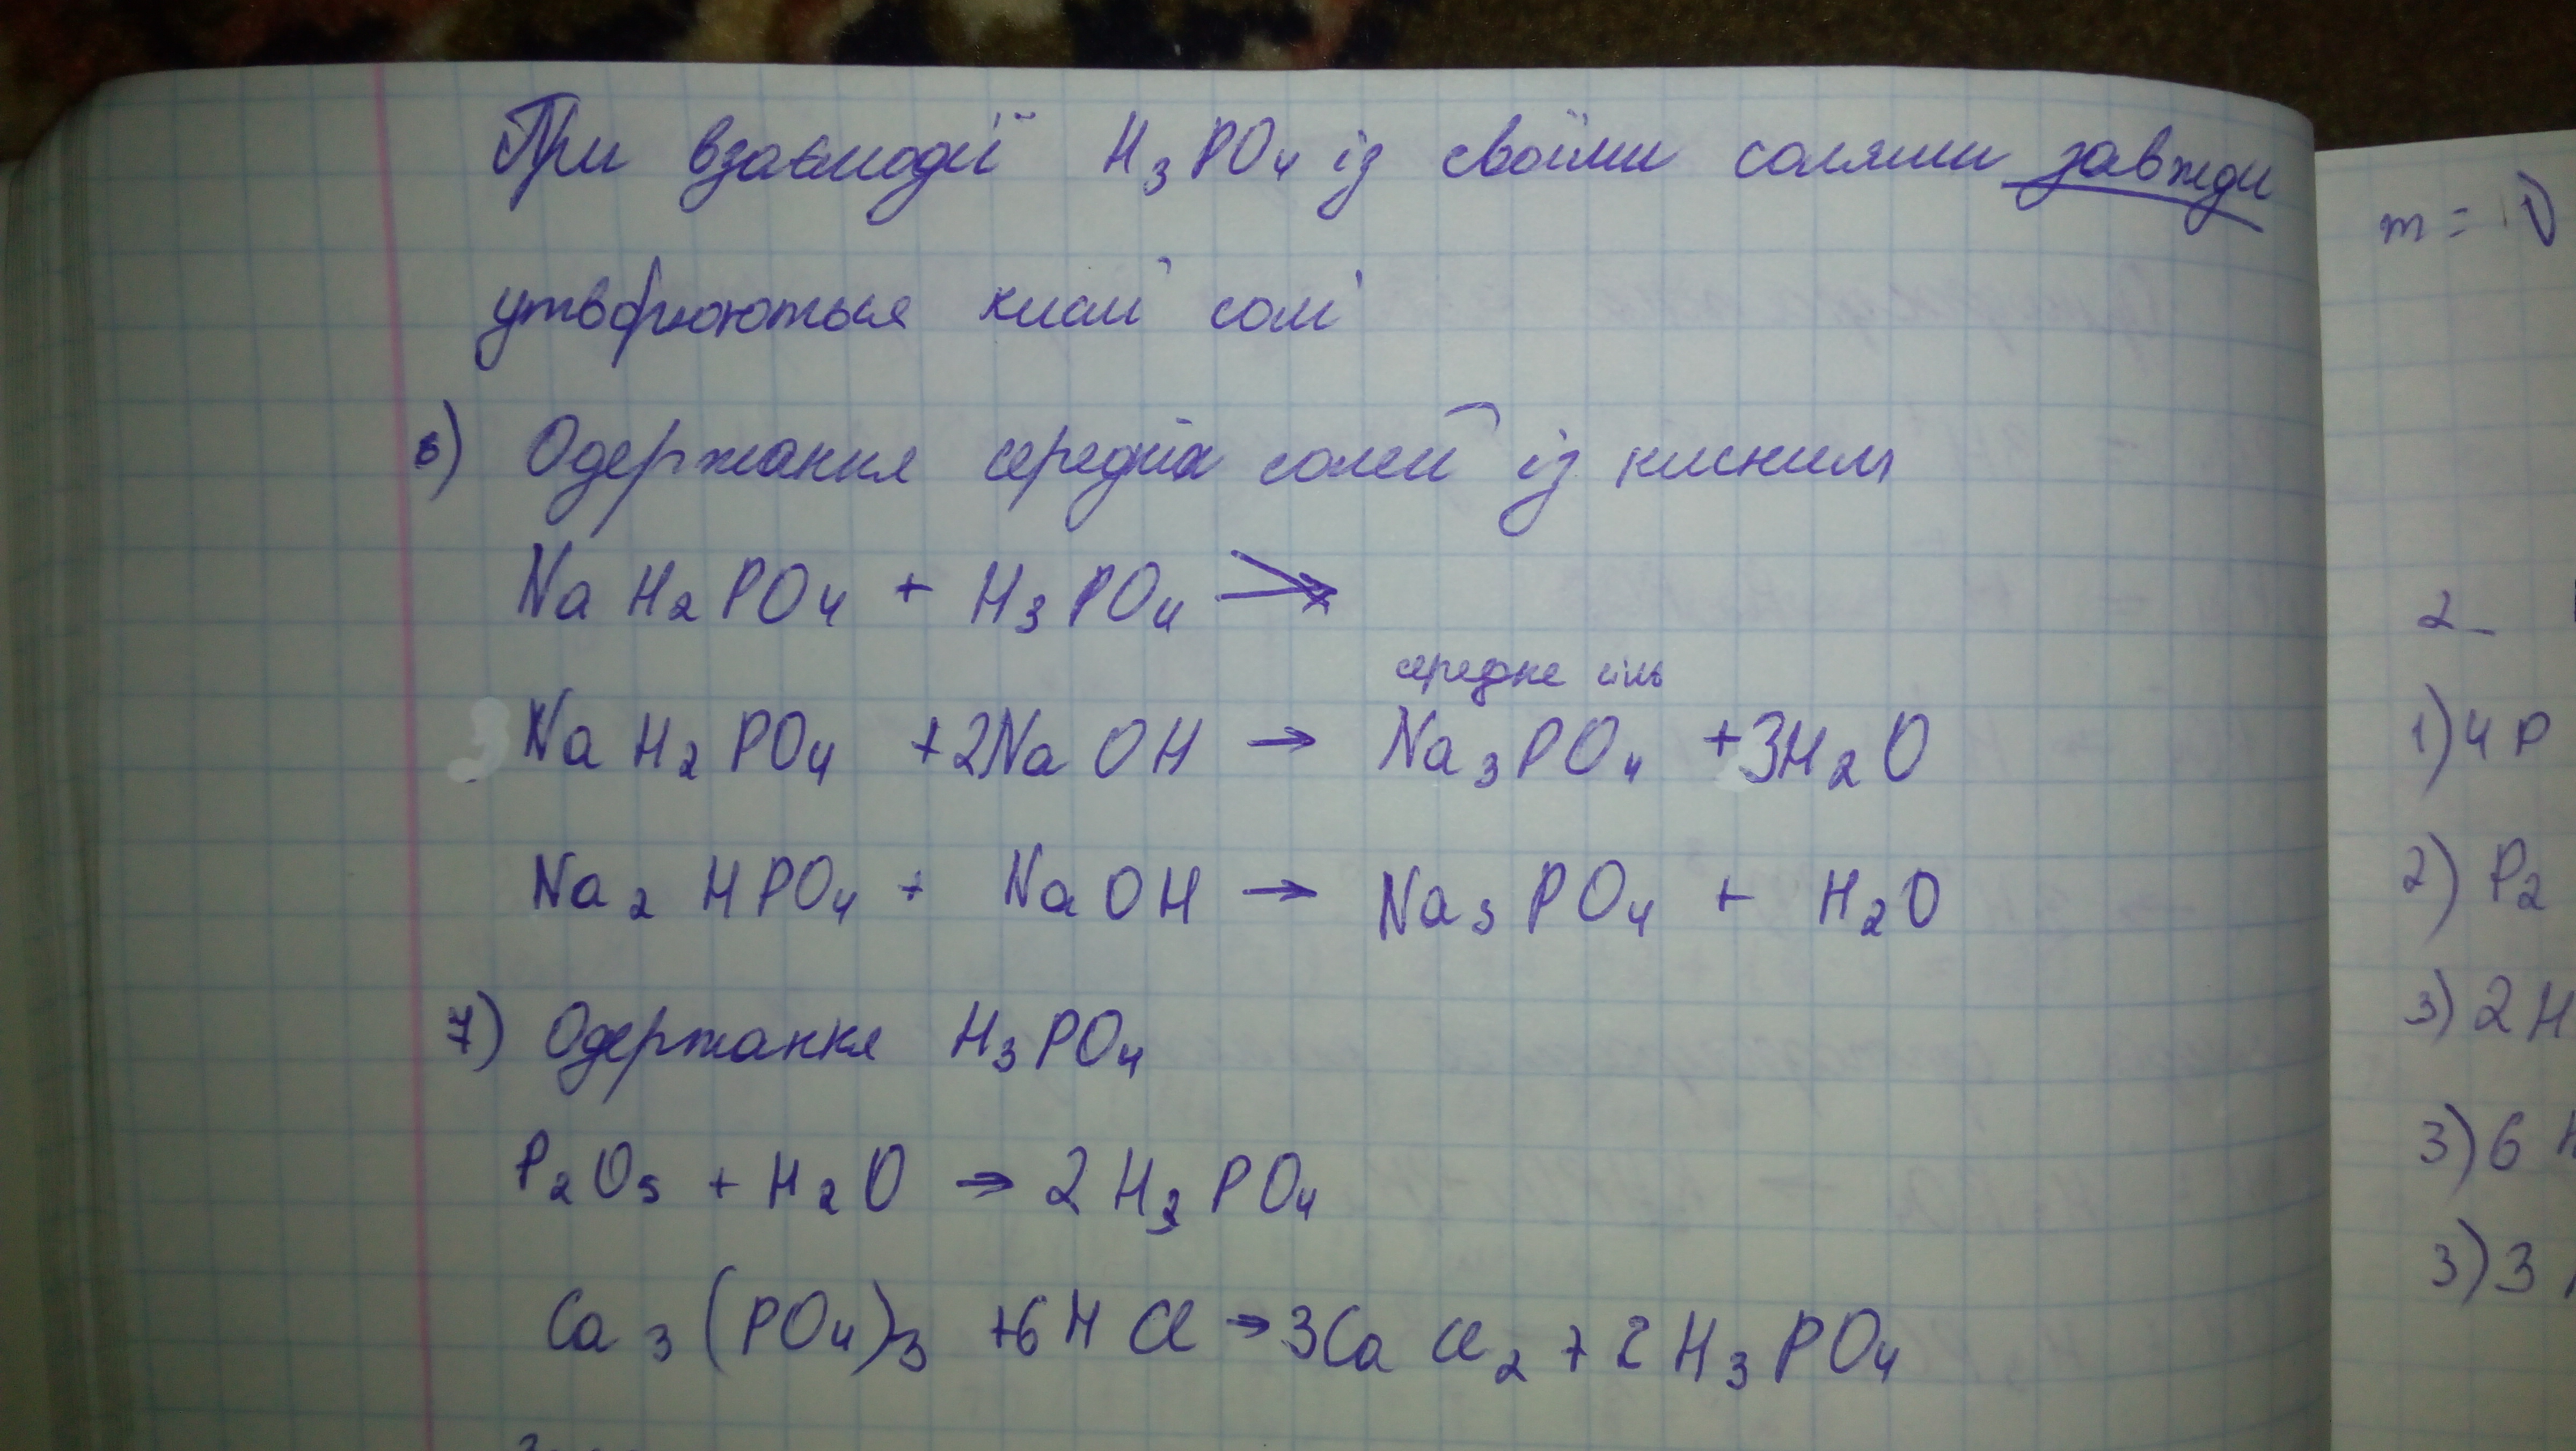 При взаємодії H₃PO₄ із своїми солями завжди
утворюються кислі солі
6) Одержання середніх солей із кисним
NaH₂PO₄ + H₃PO₄ →
середнє сіль
NaH₂PO₄ +2NaOH → Na₃PO₄ +3H₂O
Na₂HPO₄ + NaOH → Na₃PO₄ + H₂O
7) Одержання H₃PO₄
P₂O₅ + H₂O → 2H₃PO₄
Ca₃(PO₄)₃ +6HCl → 3CaCl₂ + 2H₃PO₄
m =
2 -
1) 4P
2) P₂
3) 2H
3) 6
3) 3